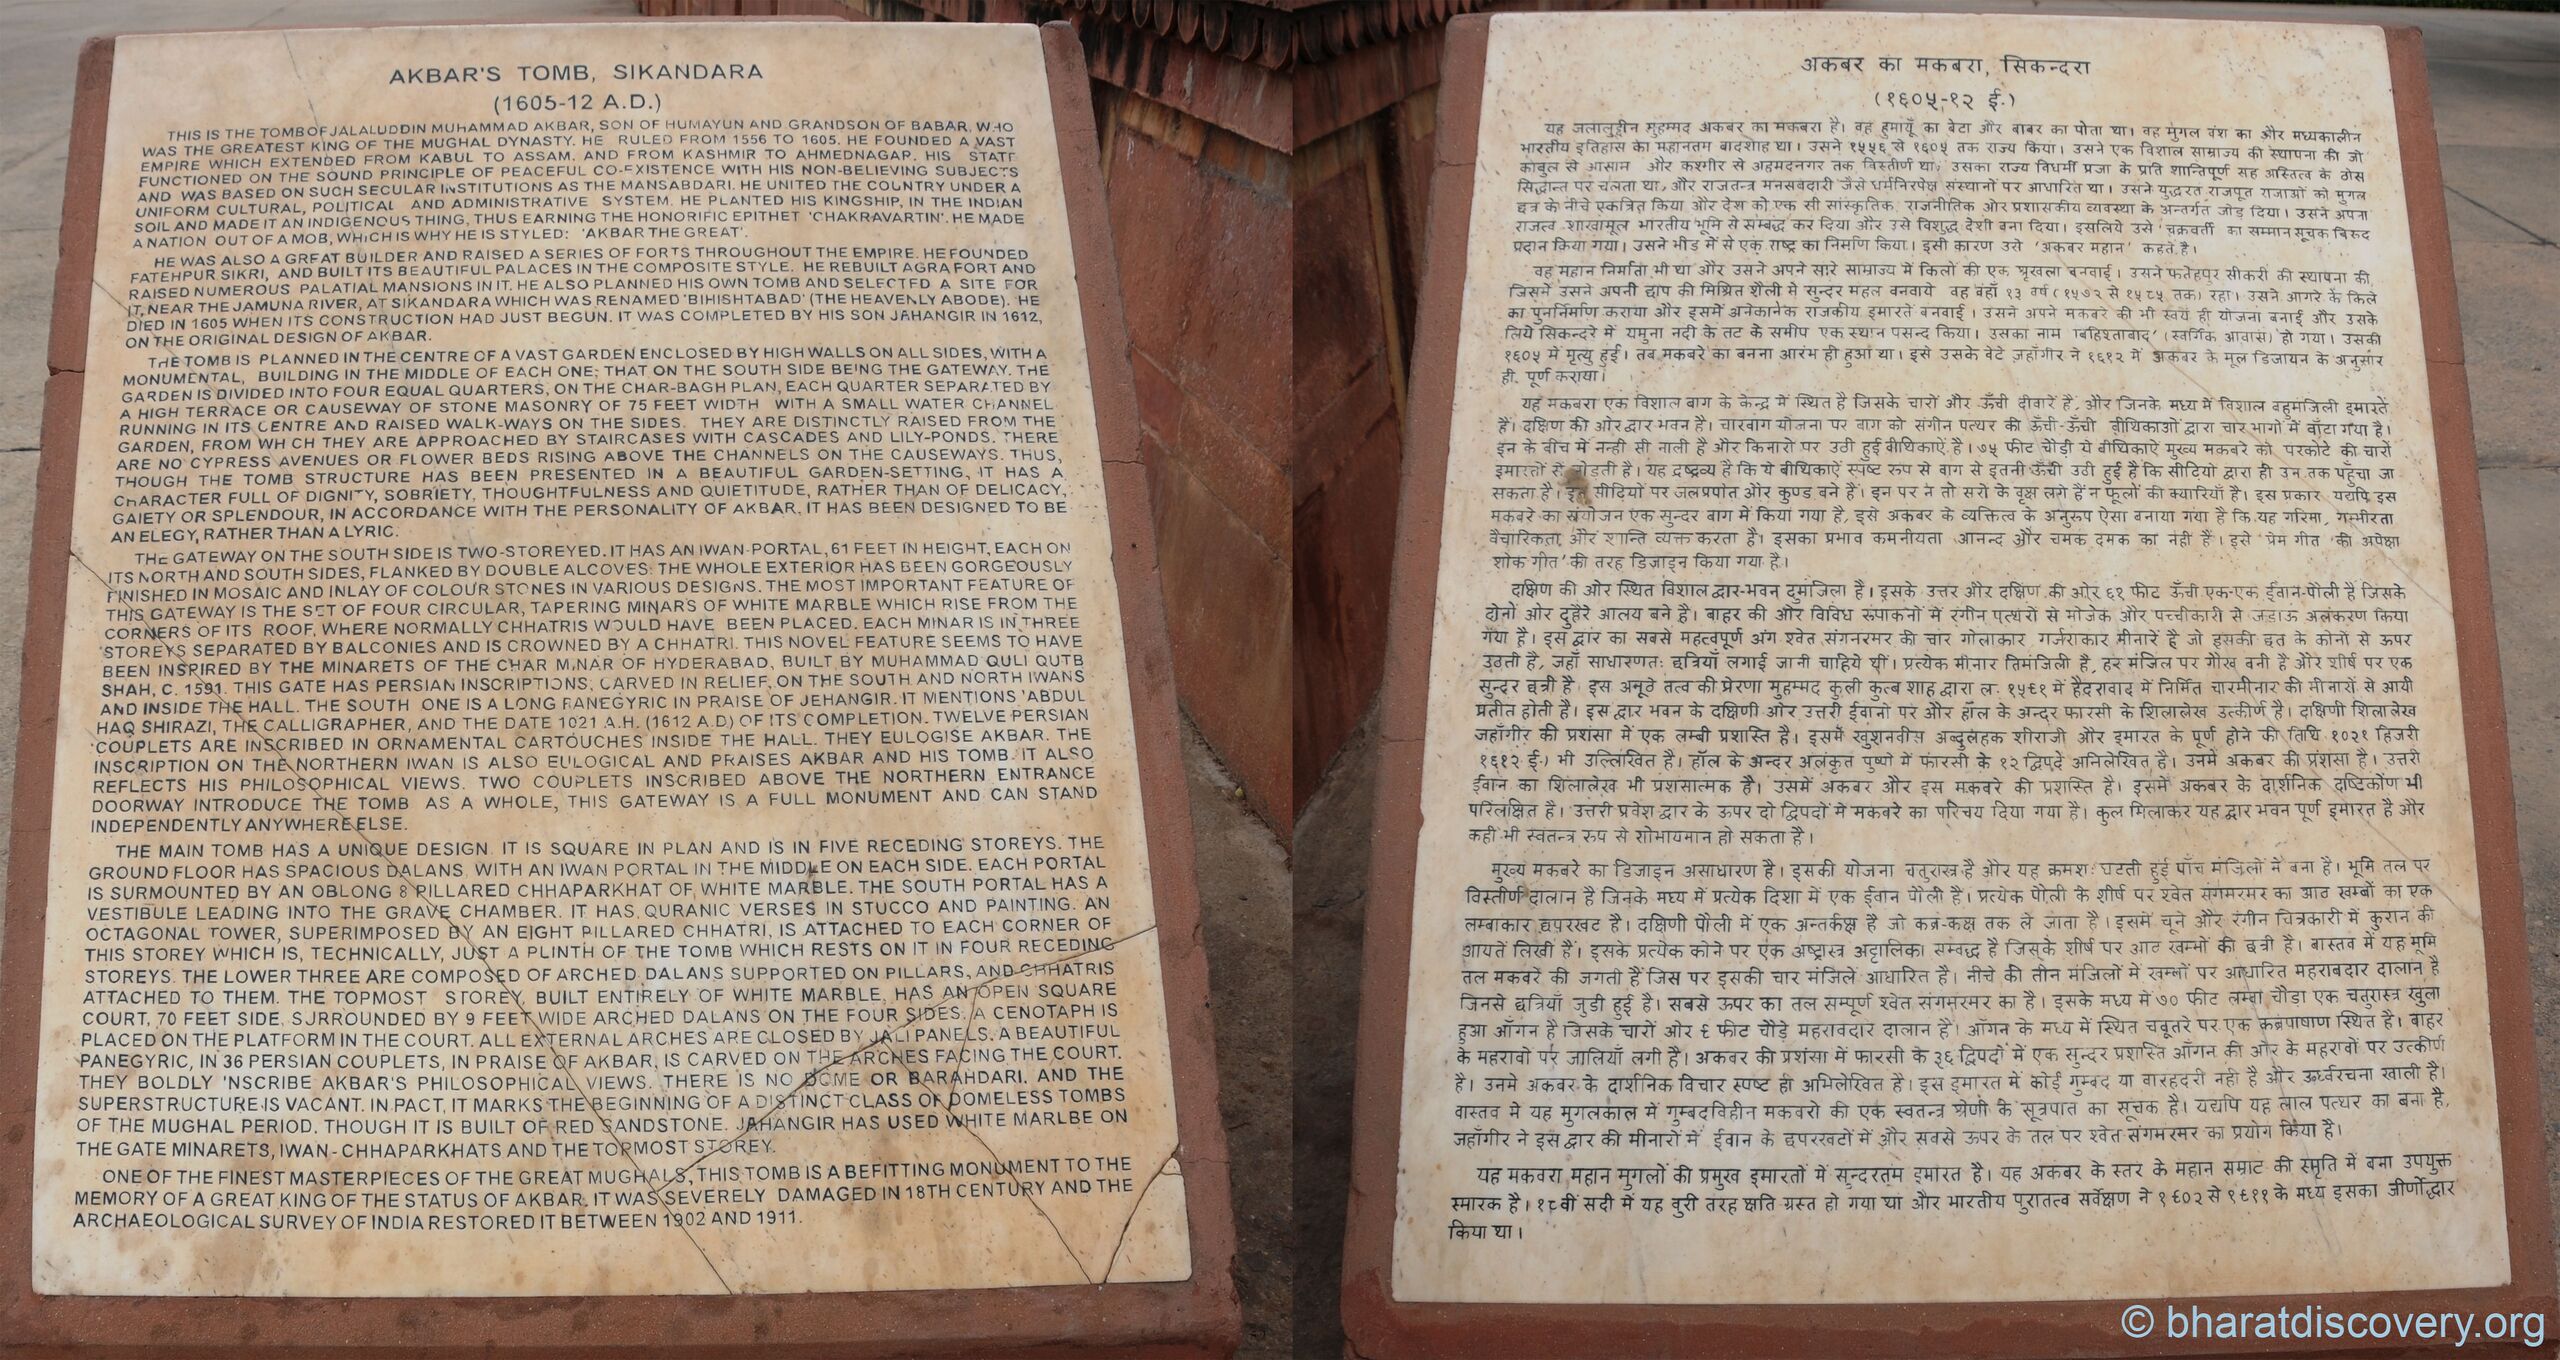 AKBAR'S TOMB, SIKANDARA
(1605-12 A.D.)
THIS IS THE TOMB OF JALALUDDIN MUHAMMAD AKBAR, SON OF HUMAYUN AND GRANDSON OF BABAR, WHO
WAS THE GREATEST KING OF THE MUGHAL DYNASTY. HE RULED FROM 1556 TO 1605. HE FOUNDED A VAST
EMPIRE WHICH EXTENDED FROM KABUL TO ASSAM, AND FROM KASHMIR TO AHMEDNAGAR. HIS STATE
FUNCTIONED ON THE SOUND PRINCIPLE OF PEACEFUL CO-EXISTENCE WITH HIS NON-BELIEVING SUBJECTS
AND WAS BASED ON SUCH SECULAR INSTITUTIONS AS THE MANSABDARI. HE UNITED THE COUNTRY UNDER A
UNIFORM CULTURAL, POLITICAL AND ADMINISTRATIVE SYSTEM. HE PLANTED HIS KINGSHIP, IN THE INDIAN
SOIL AND MADE IT AN INDIGENOUS THING, THUS EARNING THE HONORIFIC EPITHET 'CHAKRAVARTIN'. HE MADE
A NATION OUT OF A MOB, WHICH IS WHY HE IS STYLED: 'AKBAR THE GREAT'.
HE WAS ALSO A GREAT BUILDER AND RAISED A SERIES OF FORTS THROUGHOUT THE EMPIRE. HE FOUNDED
FATEHPUR SIKRI, AND BUILT ITS BEAUTIFUL PALACES IN THE COMPOSITE STYLE. HE REBUILT AGRA FORT AND
RAISED NUMEROUS PALATIAL MANSIONS IN IT. HE ALSO PLANNED HIS OWN TOMB AND SELECTED A SITE FOR
IT, NEAR THE JAMUNA RIVER, AT SIKANDARA WHICH WAS RENAMED 'BIHISHTABAD' (THE HEAVENLY ABODE). HE
DIED IN 1605 WHEN ITS CONSTRUCTION HAD JUST BEGUN. IT WAS COMPLETED BY HIS SON JAHANGIR IN 1612,
ON THE ORIGINAL DESIGN OF AKBAR.
THE TOMB IS PLANNED IN THE CENTRE OF A VAST GARDEN ENCLOSED BY HIGH WALLS ON ALL SIDES, WITH A
MONUMENTAL, BUILDING IN THE MIDDLE OF EACH ONE; THAT ON THE SOUTH SIDE BEING THE GATEWAY. THE
GARDEN IS DIVIDED INTO FOUR EQUAL QUARTERS, ON THE CHAR-BAGH PLAN, EACH QUARTER SEPARATED BY
A HIGH TERRACE OR CAUSEWAY OF STONE MASONRY OF 75 FEET WIDTH WITH A SMALL WATER CHANNEL
RUNNING IN ITS CENTRE AND RAISED WALK-WAYS ON THE SIDES. THEY ARE DISTINCTLY RAISED FROM THE
GARDEN, FROM WHICH THEY ARE APPROACHED BY STAIRCASES WITH CASCADES AND LILY-PONDS. THERE
ARE NO CYPRESS AVENUES OR FLOWER BEDS RISING ABOVE THE CHANNELS ON THE CAUSEWAYS. THUS,
THOUGH THE TOMB STRUCTURE HAS BEEN PRESENTED IN A BEAUTIFUL GARDEN-SETTING, IT HAS A
CHARACTER FULL OF DIGNITY, SOBRIETY, THOUGHTFULNESS AND QUIETITUDE, RATHER THAN OF DELICACY,
GAIETY OR SPLENDOUR, IN ACCORDANCE WITH THE PERSONALITY OF AKBAR. IT HAS BEEN DESIGNED TO BE
AN ELEGY, RATHER THAN A LYRIC.
THE GATEWAY ON THE SOUTH SIDE IS TWO-STOREYED. IT HAS AN IWAN-PORTAL, 61 FEET IN HEIGHT, EACH ON
ITS NORTH AND SOUTH SIDES, FLANKED BY DOUBLE ALCOVES. THE WHOLE EXTERIOR HAS BEEN GORGEOUSLY
FINISHED IN MOSAIC AND INLAY OF COLOUR STONES IN VARIOUS DESIGNS. THE MOST IMPORTANT FEATURE OF
THIS GATEWAY IS THE SET OF FOUR CIRCULAR, TAPERING MINARS OF WHITE MARBLE WHICH RISE FROM THE
CORNERS OF ITS ROOF, WHERE NORMALLY CHHATRIS WOULD HAVE BEEN PLACED. EACH MINAR IS IN THREE
STOREYS SEPARATED BY BALCONIES AND IS CROWNED BY A CHHATRI. THIS NOVEL FEATURE SEEMS TO HAVE
BEEN INSPIRED BY THE MINARETS OF THE CHAR MINAR OF HYDERABAD, BUILT BY MUHAMMAD QULI QUTB
SHAH, C. 1591. THIS GATE HAS PERSIAN INSCRIPTIONS, CARVED IN RELIEF, ON THE SOUTH AND NORTH IWANS
AND INSIDE THE HALL. THE SOUTH ONE IS A LONG PANEGYRIC IN PRAISE OF JEHANGIR. IT MENTIONS 'ABDUL
HAQ SHIRAZI, THE CALLIGRAPHER, AND THE DATE 1021 A.H. (1612 A.D) OF ITS COMPLETION. TWELVE PERSIAN
COUPLETS ARE INSCRIBED IN ORNAMENTAL CARTOUCHES INSIDE THE HALL. THEY EULOGISE AKBAR. THE
INSCRIPTION ON THE NORTHERN IWAN IS ALSO EULOGICAL AND PRAISES AKBAR AND HIS TOMB. IT ALSO
REFLECTS HIS PHILOSOPHICAL VIEWS. TWO COUPLETS INSCRIBED ABOVE THE NORTHERN ENTRANCE
DOORWAY INTRODUCE THE TOMB AS A WHOLE, THIS GATEWAY IS A FULL MONUMENT AND CAN STAND
INDEPENDENTLY ANYWHERE ELSE.
THE MAIN TOMB HAS A UNIQUE DESIGN. IT IS SQUARE IN PLAN AND IS IN FIVE RECEDING STOREYS. THE
GROUND FLOOR HAS SPACIOUS DALANS, WITH AN IWAN PORTAL IN THE MIDDLE ON EACH SIDE. EACH PORTAL
IS SURMOUNTED BY AN OBLONG 8 PILLARED CHHAPARKHAT OF WHITE MARBLE. THE SOUTH PORTAL HAS A
VESTIBULE LEADING INTO THE GRAVE CHAMBER. IT HAS QURANIC VERSES IN STUCCO AND PAINTING. AN
OCTAGONAL TOWER, SUPERIMPOSED BY AN EIGHT PILLARED CHHATRI, IS ATTACHED TO EACH CORNER OF
THIS STOREY WHICH IS, TECHNICALLY, JUST A PLINTH OF THE TOMB WHICH RESTS ON IT IN FOUR RECEDING
STOREYS. THE LOWER THREE ARE COMPOSED OF ARCHED DALANS SUPPORTED ON PILLARS, AND CHHATRIS
ATTACHED TO THEM. THE TOPMOST STOREY, BUILT ENTIRELY OF WHITE MARBLE, HAS AN OPEN SQUARE
COURT, 70 FEET SIDE, SURROUNDED BY 9 FEET WIDE ARCHED DALANS ON THE FOUR SIDES. A CENOTAPH IS
PLACED ON THE PLATFORM IN THE COURT. ALL EXTERNAL ARCHES ARE CLOSED BY JALI PANELS. A BEAUTIFUL
PANEGYRIC, IN 36 PERSIAN COUPLETS, IN PRAISE OF AKBAR, IS CARVED ON THE ARCHES FACING THE COURT.
THEY BOLDLY INSCRIBE AKBAR'S PHILOSOPHICAL VIEWS. THERE IS NO DOME OR BARAHDARI, AND THE
SUPERSTRUCTURE IS VACANT. IN PACT, IT MARKS THE BEGINNING OF A DISTINCT CLASS OF DOMELESS TOMBS
OF THE MUGHAL PERIOD. THOUGH IT IS BUILT OF RED SANDSTONE. JAHANGIR HAS USED WHITE MARLBE ON
THE GATE MINARETS, IWAN-CHHAPARKHATS AND THE TOPMOST STOREY.
ONE OF THE FINEST MASTERPIECES OF THE GREAT MUGHALS, THIS TOMB IS A BEFITTING MONUMENT TO THE
MEMORY OF A GREAT KING OF THE STATUS OF AKBAR. IT WAS SEVERELY DAMAGED IN 18TH CENTURY AND THE
ARCHAEOLOGICAL SURVEY OF INDIA RESTORED IT BETWEEN 1902 AND 1911.
अकबर का मकबरा, सिकन्दरा
(१६०५-१२ ई.)
यह जलालुद्दीन मुहम्मद अकबर का मकबरा है। वह हुमायूँ का बेटा और बाबर का पोता था। वह मुगल वंश का और मध्यकालीन
भारतीय इतिहास का महानतम बादशाह था। उसने १५५६ से १६०५ तक राज्य किया। उसने एक विशाल साम्राज्य की स्थापना की जो
काबुल से आसाम और कश्मीर से अहमदनगर तक विस्तीर्ण था। उसका राज्य विधर्मी प्रजा के प्रति शान्तिपूर्ण सह अस्तित्व के ठोस
सिद्धान्त पर चलता था, और राजतन्त्र मनसबदारी जैसे धर्मनिरपेक्ष संस्थानों पर आधारित था। उसने युद्धरत राजपूत राजाओं को मुगल
छत्र के नीचे एकत्रित किया और देश को एक सी सांस्कृतिक, राजनीतिक और प्रशासकीय व्यवस्था के अन्तर्गत जोड़ दिया। उसने अपना
राजत्व शाखामूल भारतीय भूमि से सम्बद्ध कर दिया और उसे विशुद्ध देशी बना दिया। इसलिये उसे 'चक्रवर्ती' का सम्मान सूचक बिरुद
प्रदान किया गया। उसने भीड़ में से एक राष्ट्र का निर्माण किया। इसी कारण उसे 'अकबर महान' कहते है।
वह महान निर्माता भी था और उसने अपने सारे साम्राज्य में किलों की एक श्रृखला बनवाई। उसने फतेहपुर सीकरी की स्थापना की,
जिसमें उसने अपनी छाप की मिश्रित शैली में सुन्दर महल बनवाये वह वहाँ १३ वर्ष (१५७२ से १५८५ तक) रहा। उसने आगरे के किले
का पुनर्निर्माण कराया और इसमें अनेकानेक राजकीय इमारतें बनवाई। उसने अपने मकबरे की भी स्वयं ही योजना बनाई और उसके
लिये सिकन्दरे में यमुना नदी के तट के समीप एक स्थान पसन्द किया। उसका नाम 'बिहिश्ताबाद' (स्वर्गिक आवास) हो गया। उसकी
१६०५ में मृत्यु हुई। तब मकबरे का बनना आरंभ ही हुआ था। इसे उसके बेटे जहाँगीर ने १६१२ में अकबर के मूल डिजायन के अनुसार
ही पूर्ण कराया।
यह मकबरा एक विशाल बाग के केन्द्र में स्थित है जिसके चारों और ऊँची दीवारें है, और जिनके मध्य में विशाल बहुमंजिली इमारतें
हैं। दक्षिण की ओर द्वार भवन है। चारबाग योजना पर बाग को संगीन पत्थर की ऊँची-ऊँची वीथिकाओं द्वारा चार भागो में बाँटा गया है।
इन के बीच में नन्ही सी नाली है और किनारो पर उठी हुई वीथिकाऐं है। ७५ फीट चौड़ी ये वीथिकाऐं मुख्य मकबरे को परकोटे की चारों
इमारतों से जोड़ती है। यह द्रष्टव्य है कि ये वीथिकाऐं स्पष्ट रुप से बाग से इतनी ऊँची उठी हुई है कि सीढियो द्वारा ही उन तक पहुँचा जा
सकता है। इन सीढियों पर जलप्रपात और कुण्ड बने हैं। इन पर न तो सरो के वृक्ष लगे हैं न फूलों की क्यारियाँ है। इस प्रकार यद्यपि इस
मकबरे का संयोजन एक सुन्दर बाग में किया गया है, इसे अकबर के व्यक्तित्व के अनुरूप ऐसा बनाया गया है कि यह गरिमा, गम्भीरता
वैचारिकता और शान्ति व्यक्त करता है। इसका प्रभाव कमनीयता आनन्द और चमक दमक का नहीं है। इसे 'प्रेम गीत' की अपेक्षा
'शोक गीत' की तरह डिज़ाइन किया गया है।
दक्षिण की ओर स्थित विशाल द्वार-भवन दुमंजिला है। इसके उत्तर और दक्षिण की ओर ६१ फीट ऊँची एक-एक ईवान-पौली है जिसके
दोनो ओर दुहैरे आलय बने है। बाहर की ओर विविध रुपाकनों में रंगीन पत्थरों से मोजेक और पच्चीकारी से जडाऊ अलंकरण किया
गया है। इस द्वार का सबसे महत्वपूर्ण अंग श्वेत संगमरमर की चार गोलाकार, गर्जराकार मीनारें है जो इसकी छत के कोनों से ऊपर
उठती है, जहाँ साधारणतः छत्रियाँ लगाई जानी चाहिये थीं। प्रत्येक मीनार तिमंजिली है, हर मंजिल पर गौख बनी है और शीर्ष पर एक
सुन्दर छत्री है इस अनूठे तत्व की प्रेरणा मुहम्मद कुली कुत्ब शाह द्वारा ल. १५९१ में हैदराबाद में निर्मित चारमीनार की मीनारों से आयी
प्रतीत होती है। इस द्वार भवन के दक्षिणी और उत्तरी ईवानो पर और हॉल के अन्दर फारसी के शिलालेख उत्कीर्ण है। दक्षिणी शिलालेख
जहाँगीर की प्रशंसा में एक लम्बी प्रशस्ति है। इसमें खुशनवीस अब्दुलहक शीराजी और इमारत के पूर्ण होने की तिथि १०२१ हिजरी
१६१२ ई.) भी उल्लिखित है। हॉल के अन्दर अलंकृत पुष्पो में फारसी के १२ द्विपदे अनिलेखित है। उनमें अकबर की प्रशंसा है। उत्तरी
ईवान का शिलालेख भी प्रशंसात्मक है। उसमें अकबर और इस मकबरे की प्रशस्ति है। इसमें अकबर के दार्शनिक दृष्टिकोण भी
परिलक्षित है। उत्तरी प्रवेश द्वार के ऊपर दो द्विपदों में मकबरे का परिचय दिया गया है। कुल मिलाकर यह द्वार भवन पूर्ण इमारत है और
कही भी स्वतन्त्र रुप से शोभायमान हो सकता है।
मुख्य मकबरे का डिजाइन असाधारण है। इसकी योजना चतुरास्त्र है और यह क्रमशः घटती हुई पाँच मंजिलों में बना है। भूमि तल पर
विस्तीर्ण दालान है जिनके मध्य में प्रत्येक दिशा में एक ईवान पौली है। प्रत्येक पौली के शीर्ष पर श्वेत संगमरमर का आठ खम्बों का एक
लम्बाकार छपरखट है। दक्षिणी पौली में एक अन्तर्कक्ष है जो कब्र-कक्ष तक ले जाता है। इसमें चूने और रंगीन चित्रकारी में कुरान की
आयतें लिखी हैं। इसके प्रत्येक कोने पर एक अष्ट्रास्त्र अट्टालिका सम्बद्ध है जिसके शीर्ष पर आठ खम्भों की छत्री है। वास्तव में यह भूमि
तल मकबरे की जगती है जिस पर इसकी चार मंजिलें आधारित है। नीचे की तीन मंजिलों में खम्भों पर आधारित महराबदार दालान है
जिनसे छत्रियाँ जुडी हुई है। सबसे ऊपर का तल सम्पूर्ण श्वेत संगमरमर का है। इसके मध्य में ७० फीट लम्बा चौडा एक चतुरास्त्र खुला
हुआ आँगन है जिसके चारों ओर ९ फीट चौड़े महरावदार दालान है। आँगन के मध्य में स्थित चबूतरे पर एक कब्रपाषाण स्थित है। बाहर
के महराबो पर जालियाँ लगी है। अकबर की प्रशंसा में फारसी के ३६ द्विपदों में एक सुन्दर प्रशस्ति आँगन की और के महराबों पर उत्कीर्ण
है। उनमे अकबर के दार्शनिक विचार स्पष्ट ही अभिलेखित है। इस इमारत में कोई गुम्बद या वारहदरी नही है और ऊर्ध्वरचना खाली है।
वास्तव मे यह मुगलकाल में गुम्बदविहीन मकबरो की एक स्वतन्त्र श्रेणी के सूत्रपात का सूचक है। यद्यपि यह लाल पत्थर का बना है,
जहाँगीर ने इस द्वार की मीनारों में ईवान के छपरखटों में और सबसे ऊपर के तल पर श्वेत-संगमरमर का प्रयोग किया है।
यह मकबरा महान मुगलों की प्रमुख इमारतों में सुन्दरतम इमारत है। यह अकबर के स्तर के महान सम्राट की स्मृति में बना उपयुक्त
स्मारक है। १८वीं सदी में यह बुरी तरह क्षति ग्रस्त हो गया था और भारतीय पुरातत्व सर्वेक्षण ने १९०२ से १९११ के मध्य इसका जीर्णोद्धार
किया था।
© bharatdiscovery.org